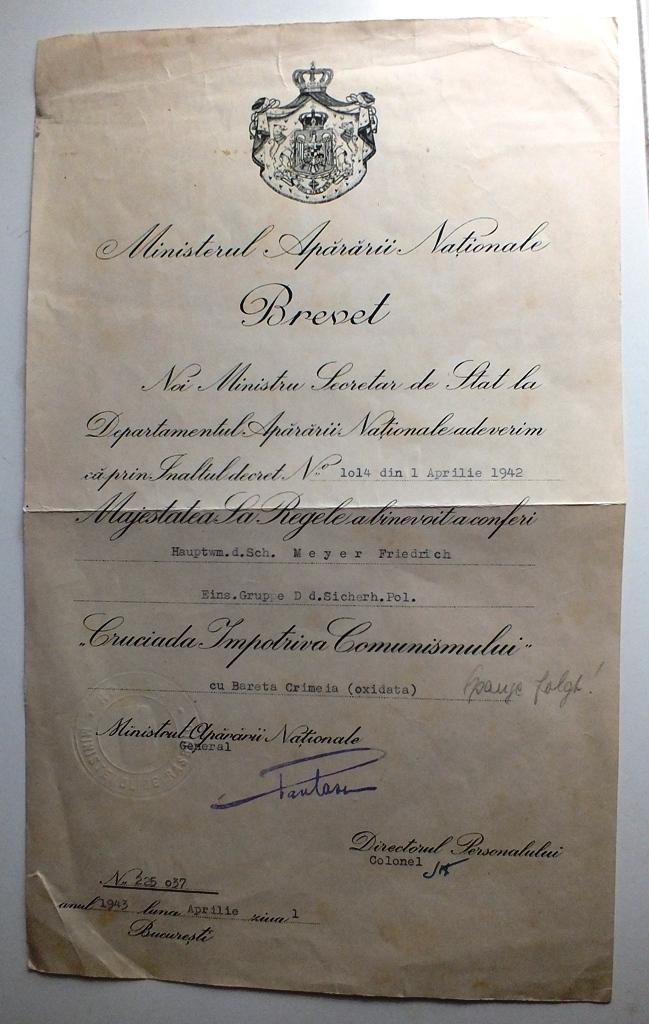 Ministerul Apărării Naționale
Brevet
Noi Ministru Secretar de Stat la
Departamentul Apărării Naționale adeverim
că prin Inaltul decret No 1o14 din 1 Aprilie 1942
Majestatea Sa Regele a binevoit a conferi
Hauptwm.d.Sch. Meyer Friedrich
Eins.Gruppe D d.Sicherh.Pol.
„Cruciada Impotriva Comunismului"
cu Bareta Crimeia (oxidata) Spange folgt!
Ministrul Apărării Naționale
General
Directorul Personalului
Colonel
No 225 037
anul 1943 luna Aprilie ziua 1
București